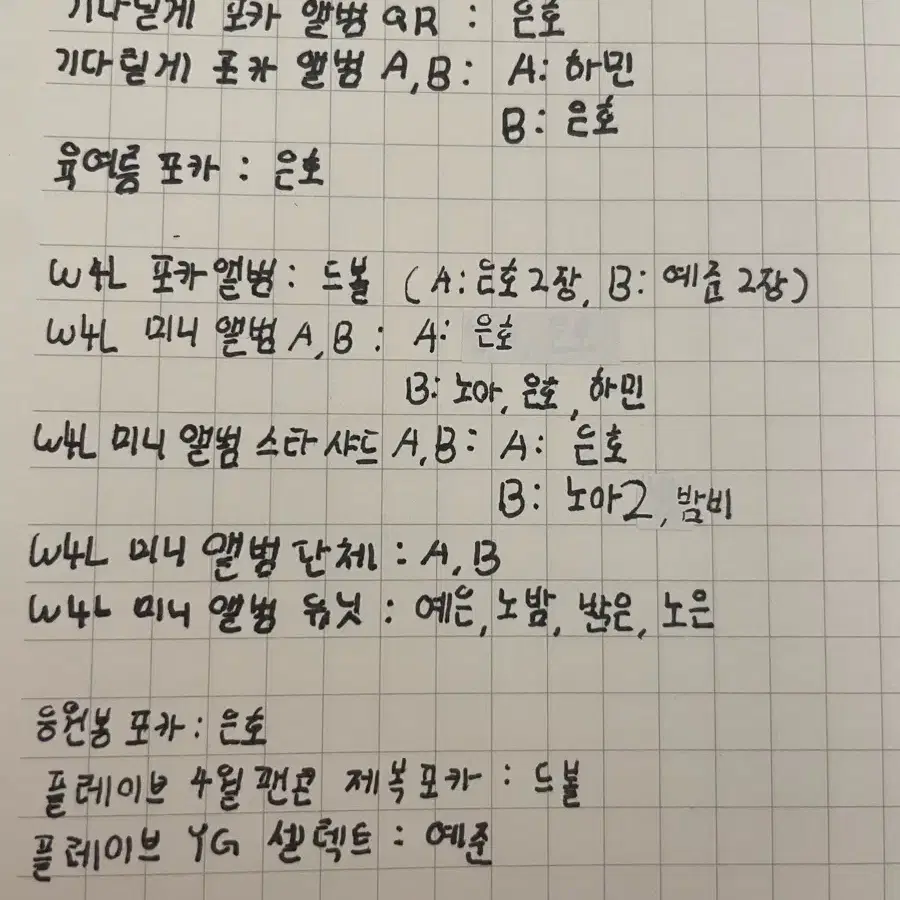 기다릴게 포카 앨범 QR : 은호
기다릴게 포카 앨범 A,B : A: 하민
B: 은호
육여름 포카 : 은호
W4L 포카앨범 : 드볼 (A:은호2장, B: 예준2장)
W4L 미니 앨범 A,B : A: 은호
B: 노아, 은호, 하민
W4L 미니 앨범 스타샤드 A,B : A: 은호
B: 노아2, 밤비
W4L 미니 앨범 단체 : A,B
W4L 미니 앨범 듀닛 : 예은, 노밤, 밚은, 노은
응원봉 포카 : 은호
플레이브 4월 팬콘 제복포카 : 드볼
플레이브 YG 셀렉트 : 예준